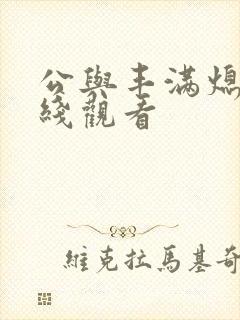 公與丰满媳
綫觀看
維克拉馬基奇